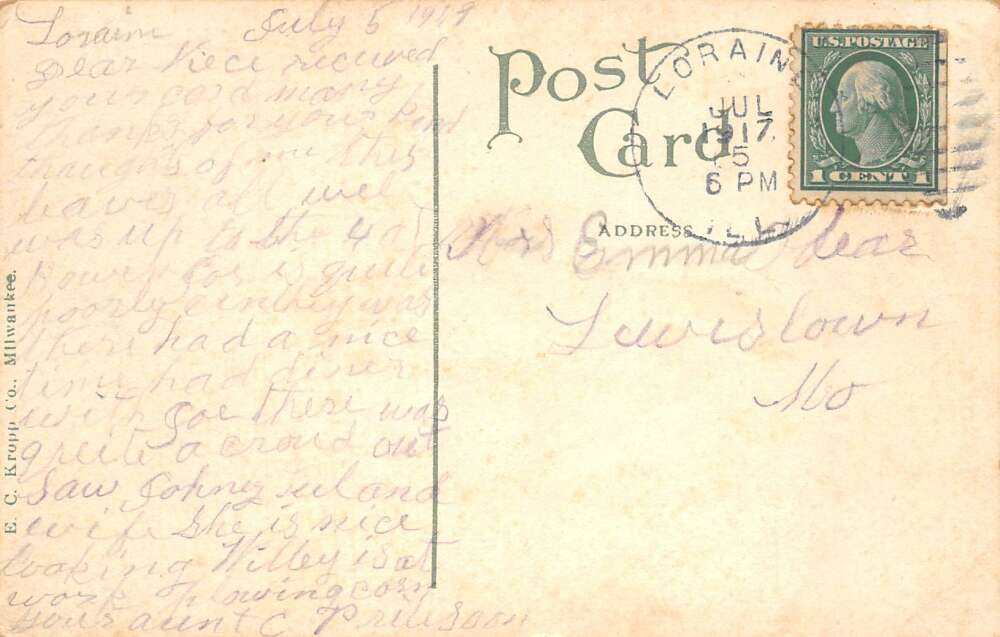 Loraine July 5 1919
Dear Niece received
your card many
thanks for your kind
thoughts of me this
leaves all well
was up to the 4 at
Bowen Joe is quite
poorly was
there had a nice
time had diner
with Joe there was
quite a croud out
Saw Johney and
wife she is nice
looking Willey is at
work plowing corn
your aunt C
E. C. Kropp Co., Milwaukee.
Post
Card
LORAINE
JUL
1917
5
6 PM
ILL
U.S. POSTAGE
1 CENT 1
ADDRESS
Mrs Emma Dear
Lewistown
Mo